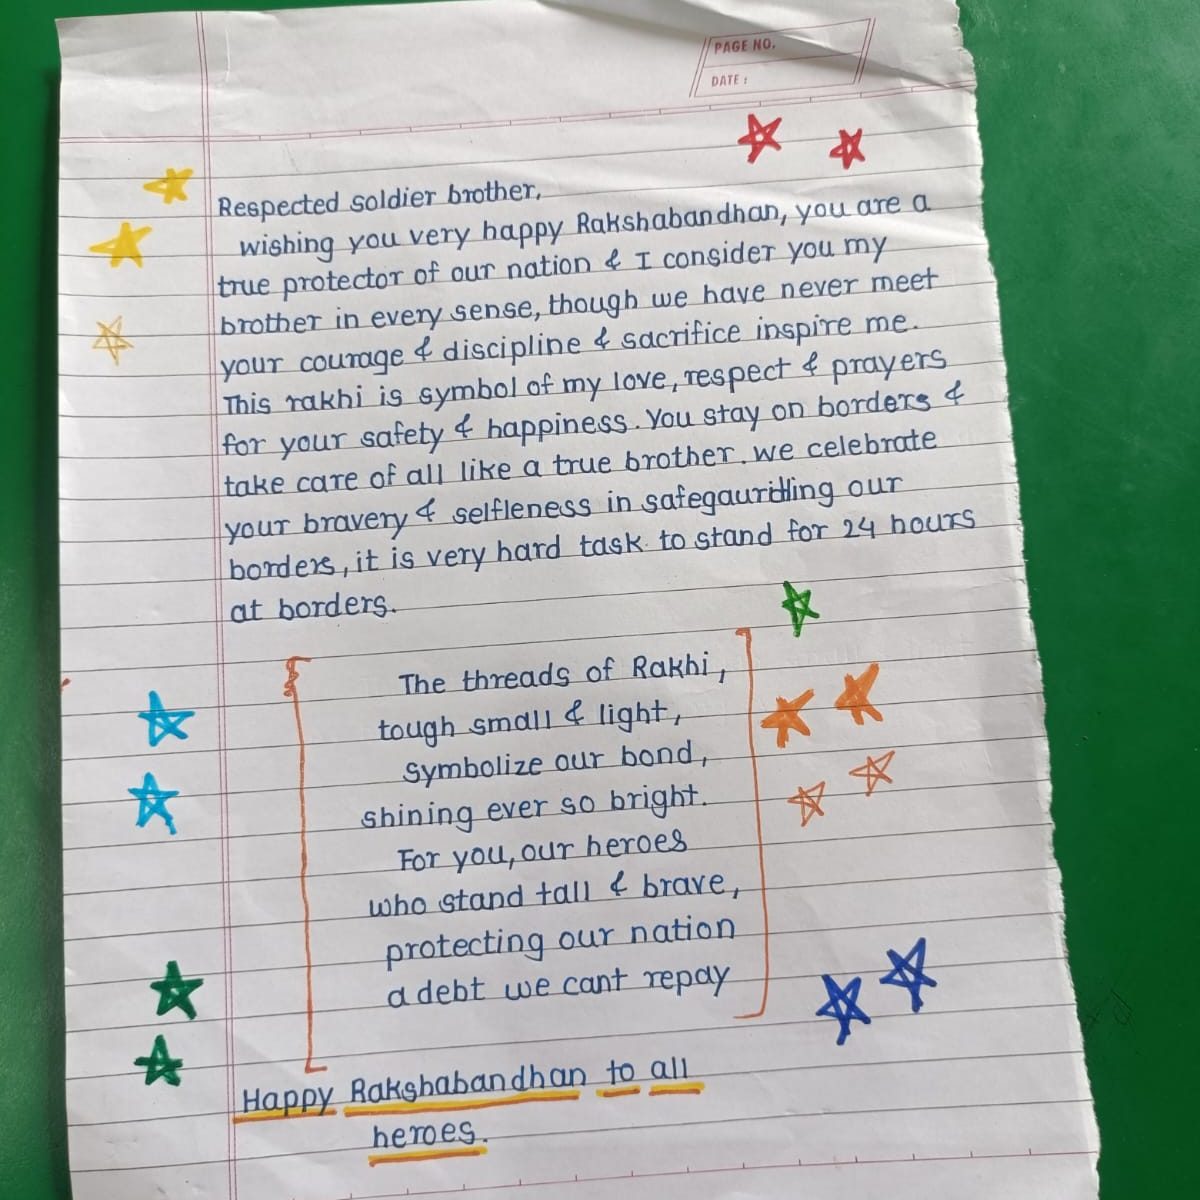 PAGE NO.
DATE :
Respected soldier brother,
wishing you very happy Rakshabandhan, you are a
true protector of our nation & I consider you my
brother in every sense, though we have never meet
your courage & discipline & sacrifice inspire me.
This rakhi is symbol of my love, respect & prayers
for your safety & happiness. You stay on borders &
take care of all like a true brother. we celebrate
your bravery & selfleness in safegauridling our
borders, it is very hard task to stand for 24 hours
at borders.
The threads of Rakhi,
tough small & light,
Symbolize our bond,
shining ever so bright.
For you, our heroes
who stand tall & brave,
protecting our nation
a debt we cant repay
Happy Rakshabandhan to all
heroes.